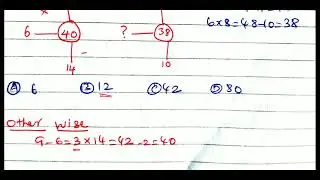 6×8=48-10=38
6 40 ? 38
14 10
Ⓐ 6 Ⓑ 12 Ⓒ 42 Ⓓ 80
Other wise
9-6=3×14=42-2=40